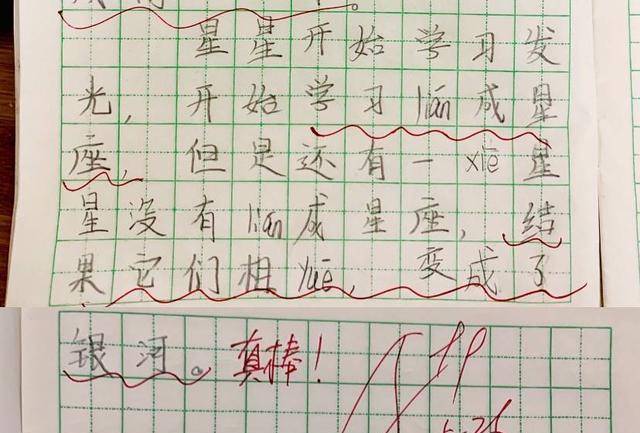 星星开始学习发
光，开始学习lián成星
座，但是还有一xiē星
星没有lián成星座，结
果它们相yuē，变成了
银河。真棒！